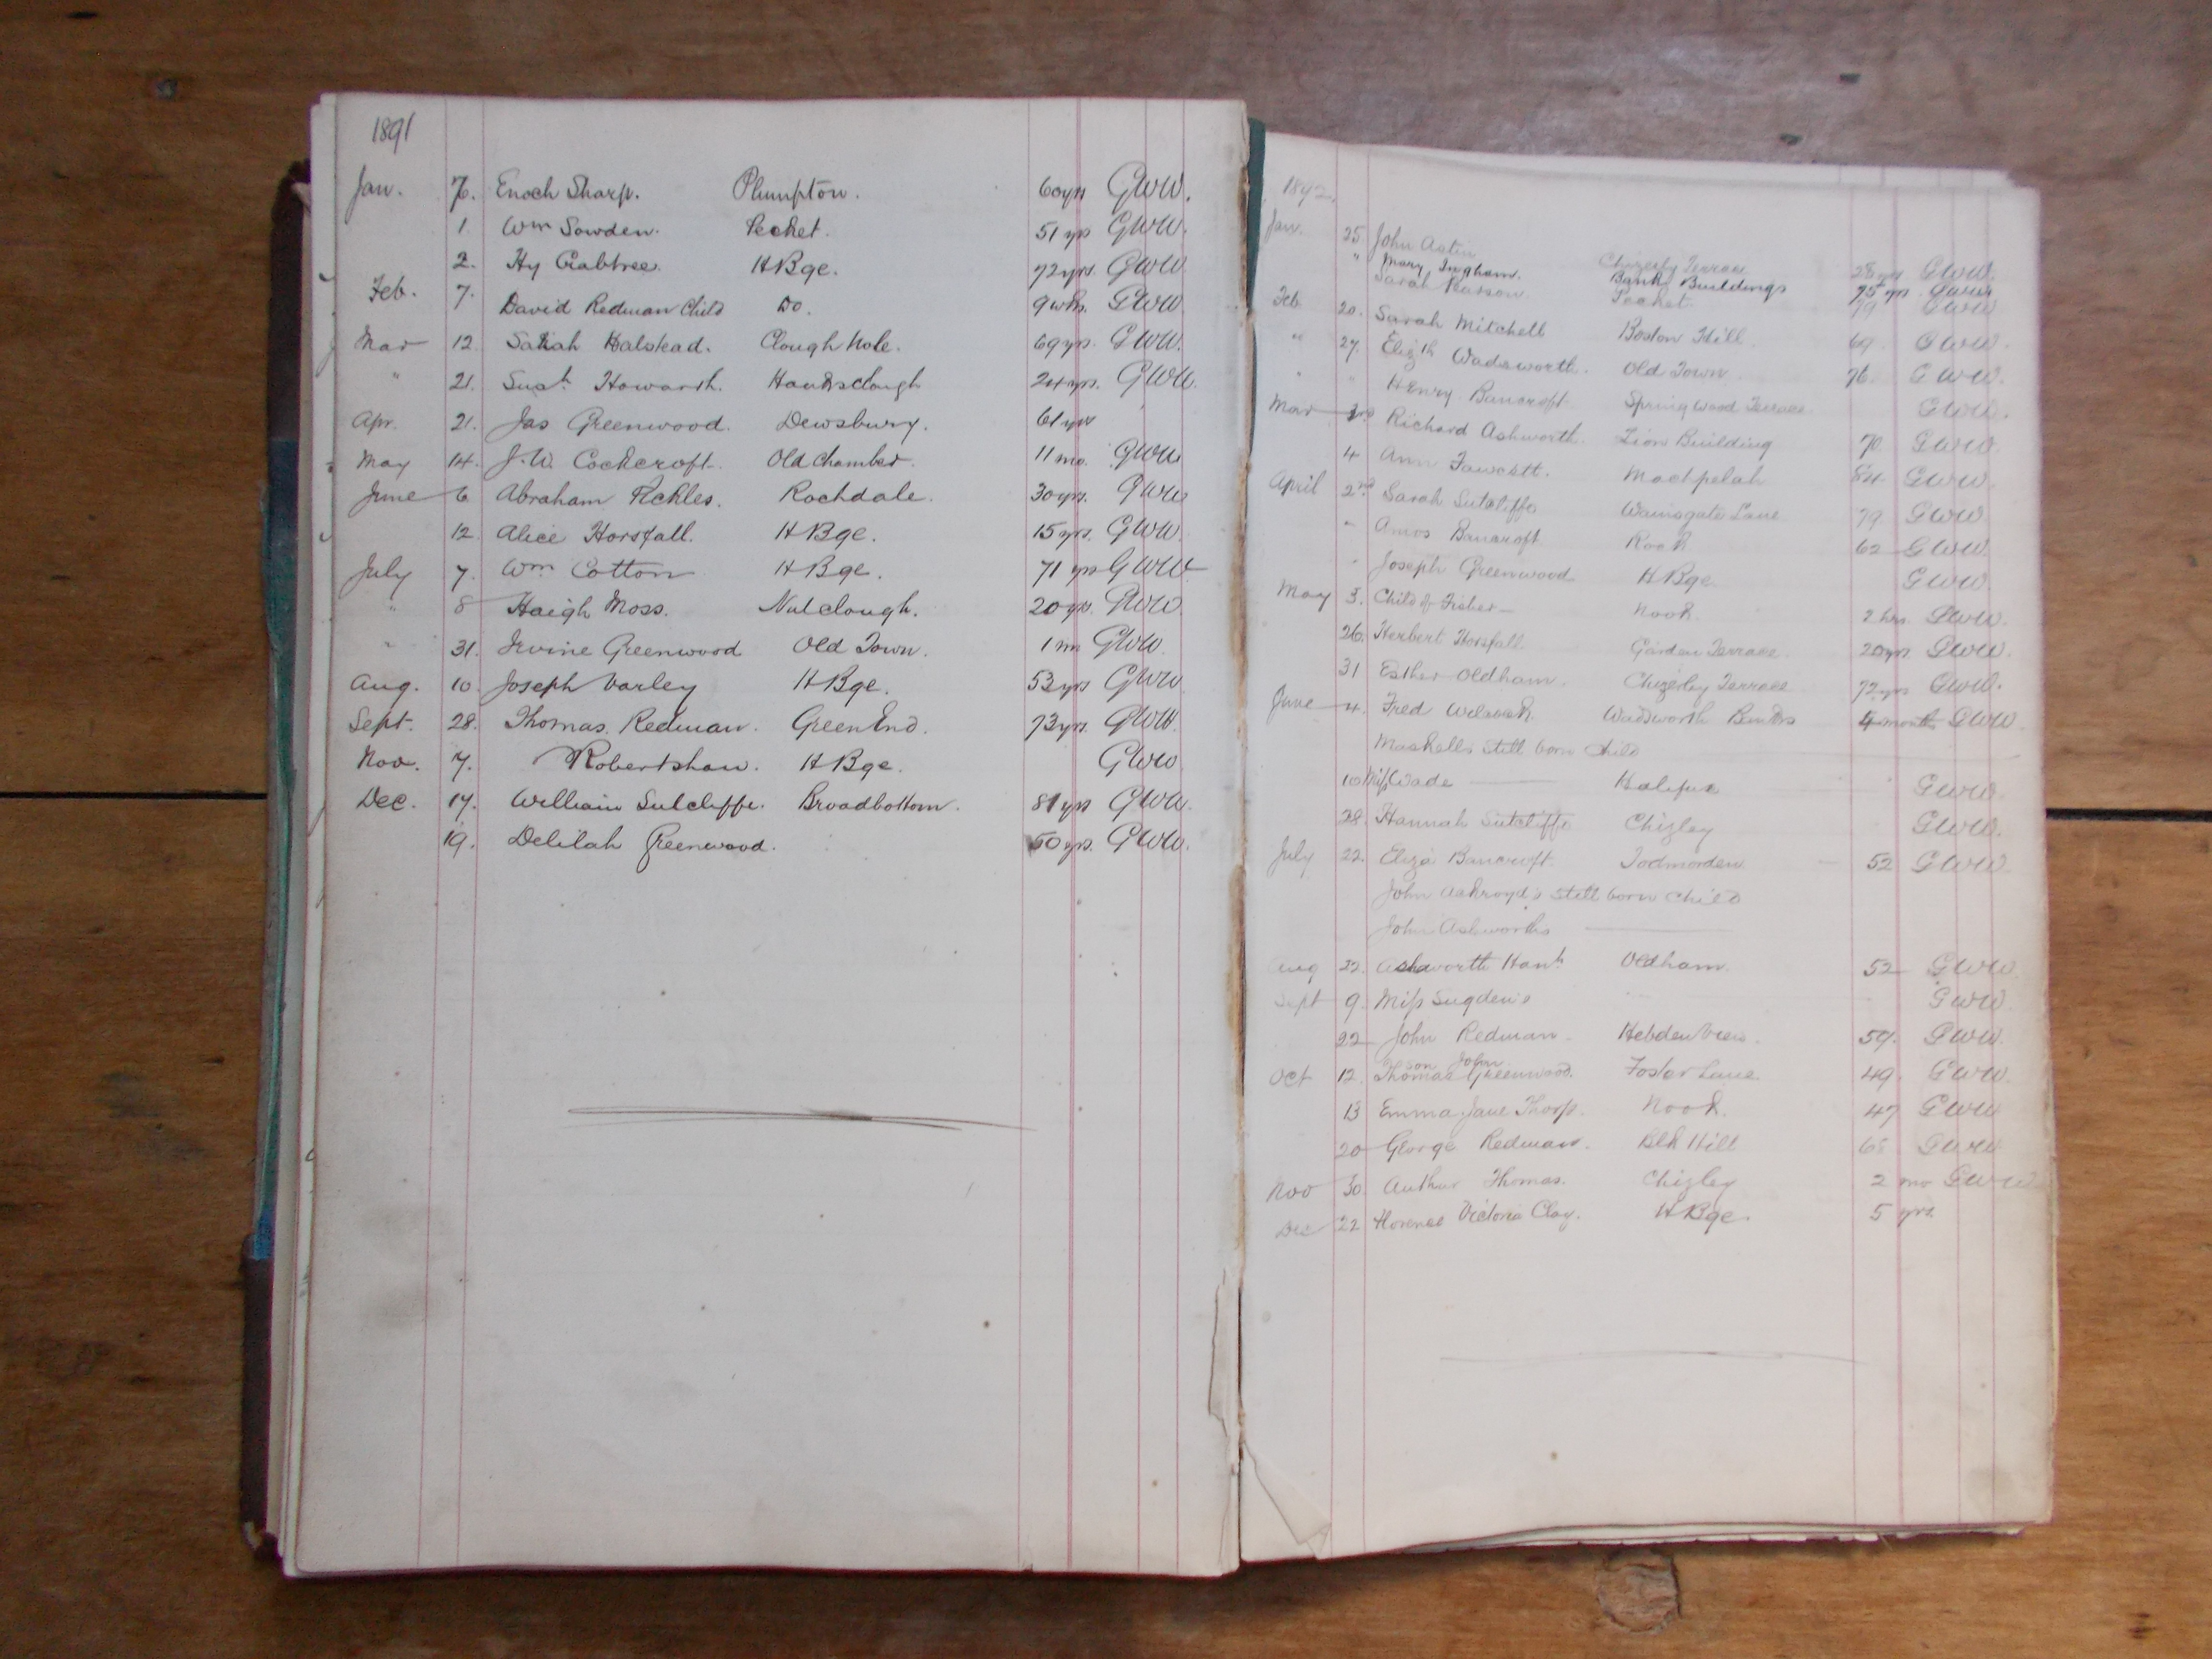 1891
Jan. 7. Enoch Sharp. Plumpton. 60 yrs GWW.
1. Wm Sowden. Pecket. 51 yrs GWW.
2. Hy Crabtree. H Bge. 72 yrs. GWW.
Feb. 7. David Redman Child Do. 9 wks. GWW.
Mar 12. Sarah Halstead. Clough Hole. 69 yrs. GWW.
" 21. Sush. Howarth. Hawksclough 24 yrs. GWW.
Apr. 21. Jas Greenwood. Dewsbury. 61 yrs
May 14. J.W. Cockcroft. Old Chamber. 11 mo. GWW
June 6 Abraham Pickles. Rochdale. 30 yrs. GWW
12 Alice Horsfall. H Bge. 15 yrs. GWW.
July 7. Wm Cotton H Bge. 71 yrs GWW
" 8 Haigh Moss. Nutclough. 20 yrs. GWW.
" 31. Irvine Greenwood Old Town. 1 m GWW.
Aug. 10. Joseph Varley H Bge. 53 yrs GWW
Sept. 28. Thomas. Redman. Green End. 73 yrs. GWW
Nov. 7. Robertshaw. H Bge. GWW
Dec. 17. William Sutcliffe. Broadbottom. 81 yrs GWW.
19. Delilah Greenwood. 50 yrs. GWW.
1892.
Jan. 25 John Astin Chizerley Terrace 28 yrs GWW.
" Mary Ingham. Bank Buildings 75 yrs GWW
Sarah Pecket 79 GWW
Feb 20. Sarah Mitchell Boston Hill 69. GWW.
" 27. Elizth Wadsworth. Old Town 76. GWW.
" " Henry Bancroft Springwood Terrace GWW.
Mar 3rd Richard Ashworth. Zion Building 70 GWW
4 Ann Fawcett. Machpelah 84 GWW.
April 2nd Sarah Sutcliffe Wainsgate Lane 79 GWW
" Amos Bancroft Rook 62 GWW.
" Joseph Greenwood H Bge GWW.
May 3. Child of Fisher Nook. 2 hrs. GWW.
26. Herbert Horsfall Garden Terrace. 20 yrs. GWW.
31 Esther Oldham. Chizerley Terrace 72 yrs GWW.
June 4. Fred Wadsworth Banks 4 months GWW.
Maskells still born child
10 Miss Wade Halifax GWW
28. Hannah Sutcliffe Chisley GWW.
July 22. Eliza Bancroft. Todmorden 52 GWW.
John Ackroyd's still born child
John Ashworths
Aug 22. Ashworth Hanh Oldham. 52 GWW
Sept 9. Miss Sugden's GWW.
22 John Redman. Hebden View. 59. GWW.
son John
Oct 12. Thomas Greenwood. Foster Lane. 49. GWW.
13 Emma Jane Thorp. Nook. 47 GWW
20 George Redman. Blk Hill GWW
Nov 30 Arthur Thomas. Chisley 2 mo GWW
Dec 22 Florence Victoria Clay. H Bge. 5 yrs.